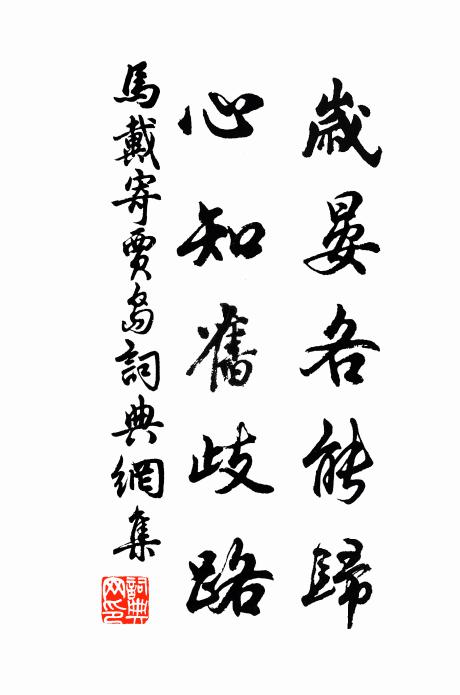 歲晏各能歸
心知舊歧路
馬戴寄賈島詞典網集
詞典網印